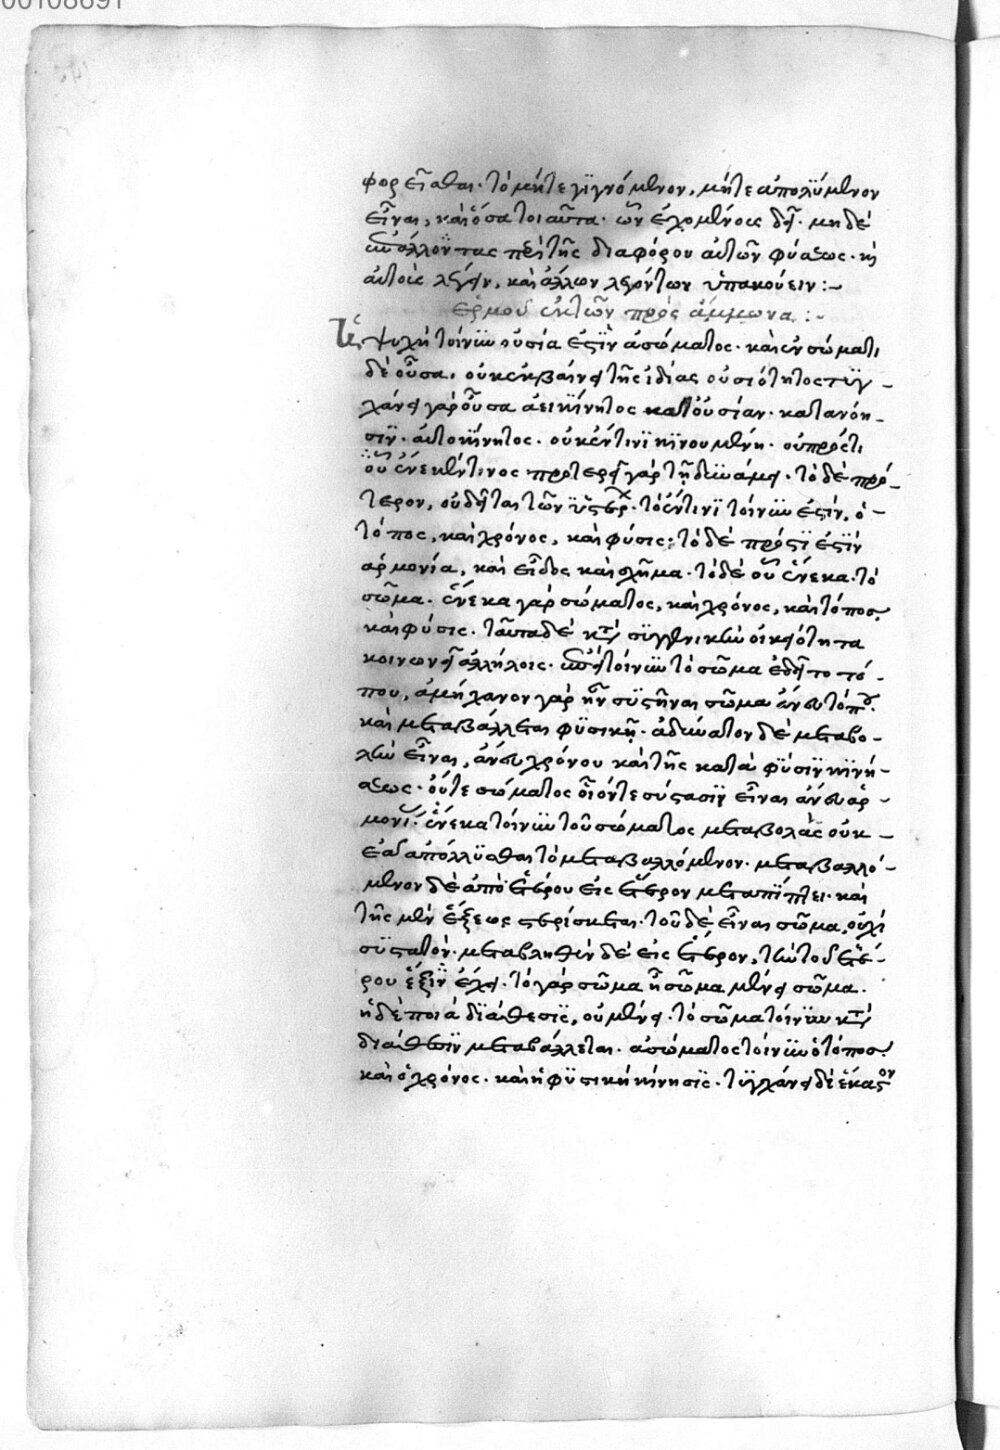 00108691
φορεῖσθαι· τὸ μήτε γϊγνόμενον, μήτε ἀπολύμενον
εἶναι, καὶ ὅσα τοιαῦτα· ὧν ἐχομένοις δεῖ· μηδὲ
ἀμβάλλοντας περὶ τῆς διαφόρου αὐτῶν φύσεως· κὶ
αὐτοῖς λέγειν, καὶ ἄλλων λεγόντων ὑπακούειν :~
ἑρμοῦ ἐκ τῶν πρὸς ἄμμωνα :~
Ψυχὴ τοίνυν οὐσία ἐστὶν ἀσώματος· καὶ ἐν σώματι
δὲ οὖσα, οὐκ ἐκβαίνει τῆς ἰδίας οὐσιότητος τϋγ-
χάνει γὰρ οὖσα ἀεικίνητος κατ' οὐσίαν· κατὰ νόη-
σιν· αὐτοκίνητος· οὐκ ἔν τινι κινουμένη· οὐ πρός τι
οὐχ ἕνεκέν τινος προτερεῖ γὰρ τῇ δυνάμει· τὸ δὲ πρό-
τερον, οὐ δεῖται τῶν ὑστέρων· τὸ ἔν τινι τοίνυν ἐστὶν, ὁ-
τόπος, καὶ χρόνος, καὶ φύσις· τὸ δὲ πρός τι ἐστὶν
ἁρμονία, καὶ εἶδος καὶ σχῆμα· τὸ δὲ οὗ ἕνεκα· τὸ
σῶμα· ἕνεκα γὰρ σώματος, καὶ χρόνος, καὶ τόπος
καὶ φύσις· ταῦτα δὲ κατὰ συγγενικὴν οἰκειότητα
κοινωνεῖ ἀλλήλοις· ἐπεὶ τοίνυν τὸ σῶμα ἐδεῖτο τό-
που, ἀμήχανον γὰρ ἦν συστῆναι σῶμα ἄνευ τόπου·
καὶ μεταβάλλεται φυσικῇ· ἀδύνατον δὲ μεταβο-
λὴν εἶναι, ἄνευ χρόνου καὶ τῆς κατὰ φύσιν κινή-
σεως· οὔτε σώματος οἷόν τε σύστασιν εἶναι ἄνευ ἁρ-
μονίας· ἕνεκα τοίνυν τοῦ σώματος μεταβολὰς οὐκ-
ἐᾶ ἀπόλλυσθαι τὸ μεταβαλλόμενον· μεταβαλλό-
μενον δὲ ἀπὸ ἑτέρου εἰς ἕτερον μεταπίπτει· καὶ
τῆς μὲν ἕξεως στερίσκεται· τοῦ δὲ εἶναι σῶμα, οὐχὶ
συστατόν· μεταβληθὲν δὲ εἰς ἕτερον, τὴν τοῦ ἑτέ-
ρου ἕξιν ἔχει· τὸ γὰρ σῶμα ᾗ σῶμα μένει σῶμα·
ἡ δὲ ποιὰ διάθεσις, οὐ μένει· τὸ σῶμα τοίνυν κατὰ
διάθεσιν μεταβάλλεται· ἀσώματος τοίνυν ὁ τόπος
καὶ ὁ χρόνος· καὶ ἡ φυσικὴ κίνησις· τϋγχάνει δὲ ἕκαστον